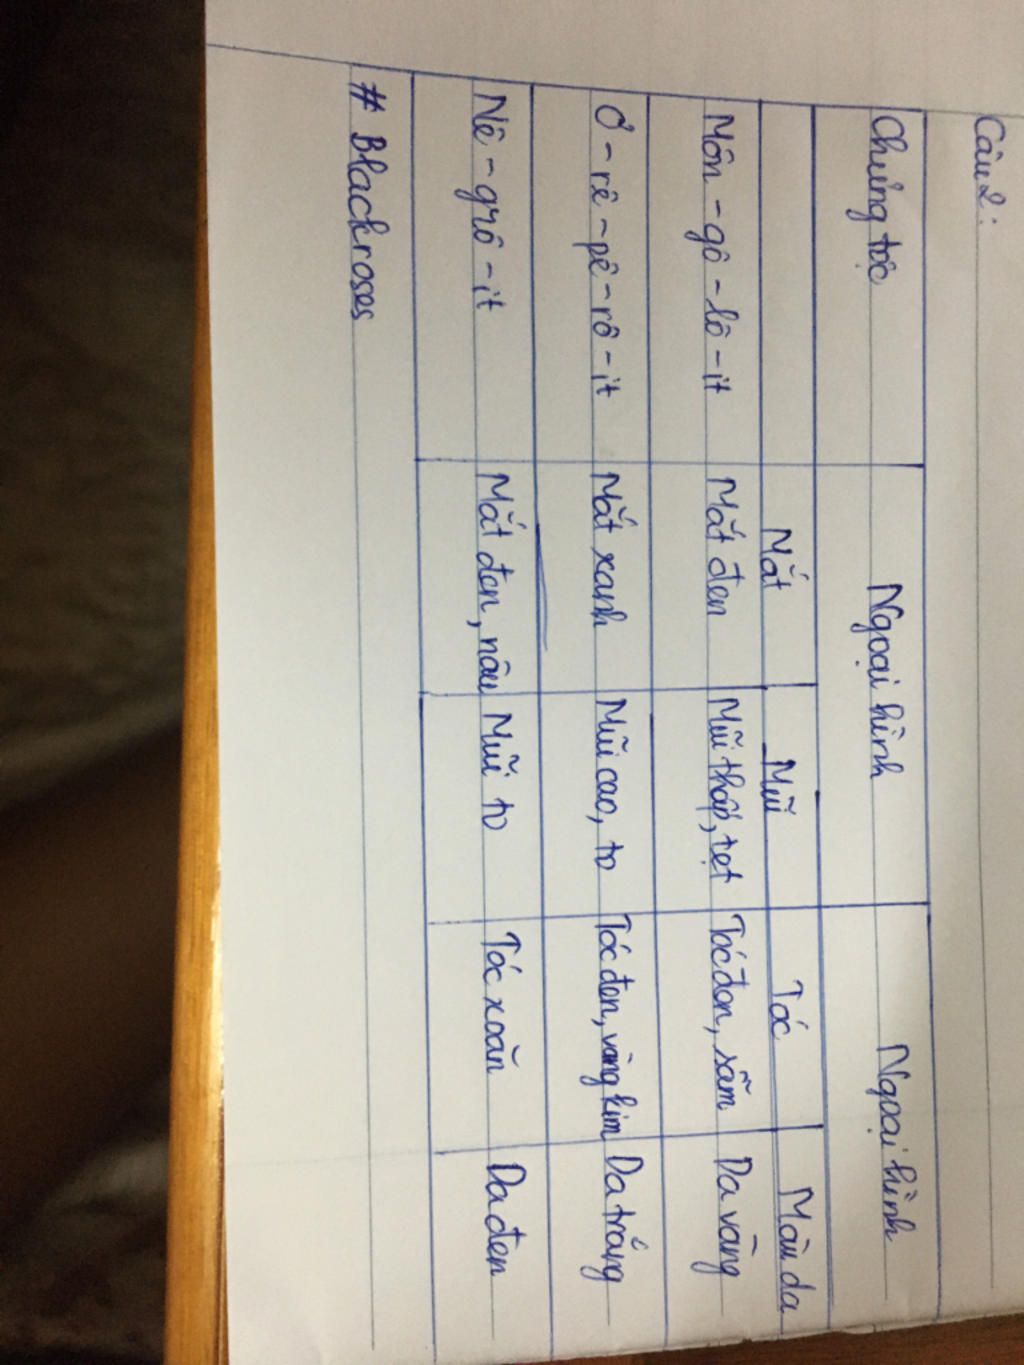 Câu 2:
Chủng tộc Ngoại hình Ngoại hình
Mắt Mũi Tóc Màu da
Môn - gô - lô - it Mắt đen Mũi thấp, tẹt Tóc đen, sẫm Da vàng
Ơ - rê - pê - rô - it Mắt xanh Mũi cao, to Tóc đen, vàng kim Da trắng
Nê - grô - it Mắt đen, nâu Mũi to Tóc xoăn Da đen
# Blackroses